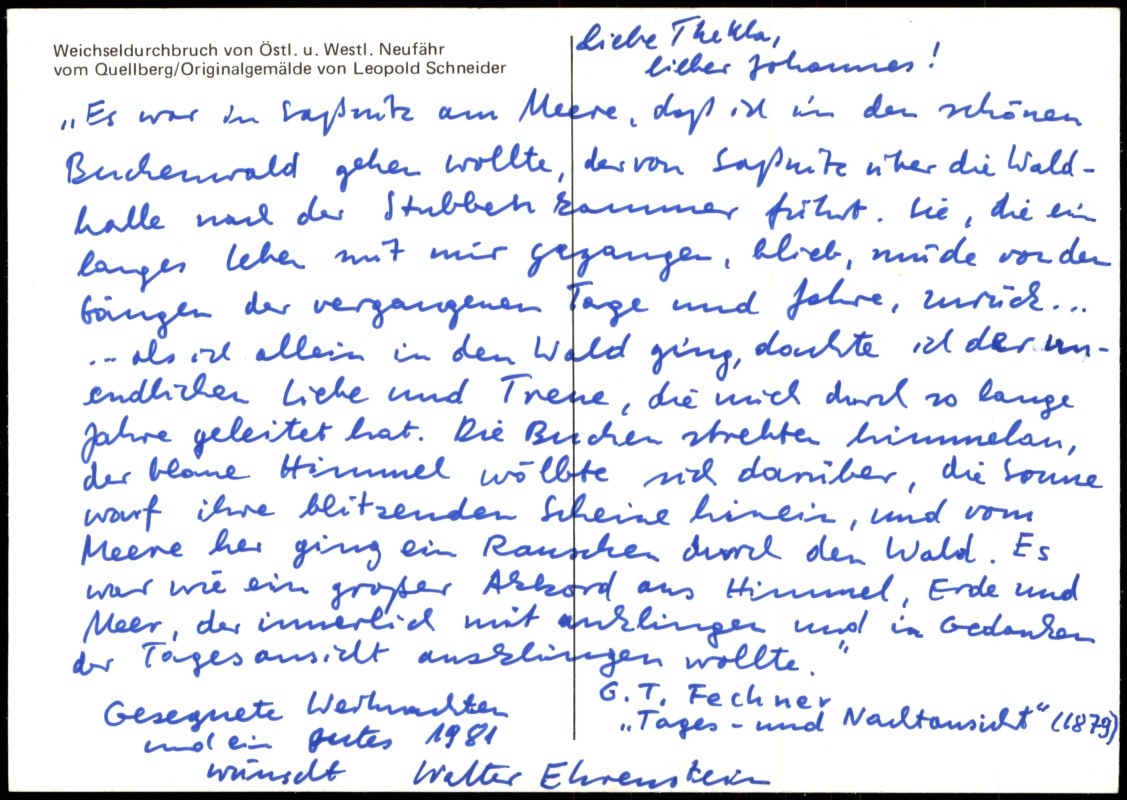 Weichseldurchbruch von Östl. u. Westl. Neufähr
vom Quellberg/Originalgemälde von Leopold Schneider
Liebe Thekla,
lieber Johannes!
„Es war in Saßnitz am Meere, daß ich in den schönen
Buchenwald gehen wollte, der von Saßnitz über die Wald-
halle nach der Stubbenkammer führt. Sie, die ein
langes Leben mit mir gegangen, blieb, müde von den
Gängen der vergangenen Tage und Jahre, zurück...
... als ich allein in den Wald ging, dachte ich der un-
endlichen Liebe und Treue, die mich durch so lange
Jahre geleitet hat. Die Buchen strebten himmelan,
der blaue Himmel wölbte sich darüber, die Sonne
warf ihre blitzenden Scheine hinein, und vom
Meere her ging ein Rauschen durch den Wald. Es
war wie ein großer Akkord aus Himmel, Erde und
Meer, der innerlich mit anklingen und in Gedanken
der Tagesansicht ausklingen wollte."
G. T. Fechner
„Tages- und Nachtansicht" (1879)
Gesegnete Weihnachten
und ein gutes 1981
wünscht Walter Ehrenstein